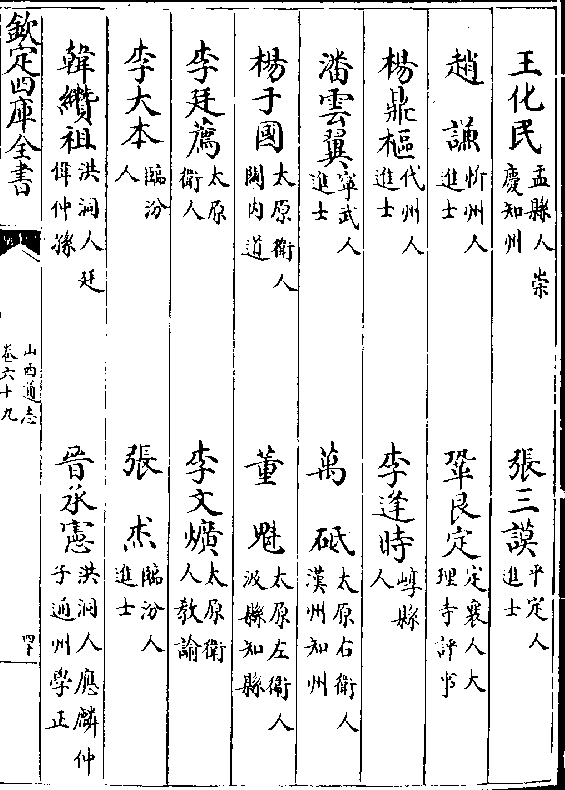 王化民 盂縣人崇慶知州 張三謨 平定人進士
趙謙 忻州人進士 鞏艮定 定襄人大理寺評事
楊鼎樞 代州人進士 李逢時 崞縣人
潘雲翼 寧武人進士 萬砥 太原右衛人漢州知州
楊于國 太原衛人關內道 董魁 太原左衛人汲縣知縣
李廷薦 太原衛人 李文爌 太原衛人教諭
李大本 臨汾人 張杰 臨汾人進士
韓纘祖 洪洞人廷偉仲孫 晉承憲 洪洞人應麟仲子通州學正
欽定四庫全書
山西通志
卷六十九